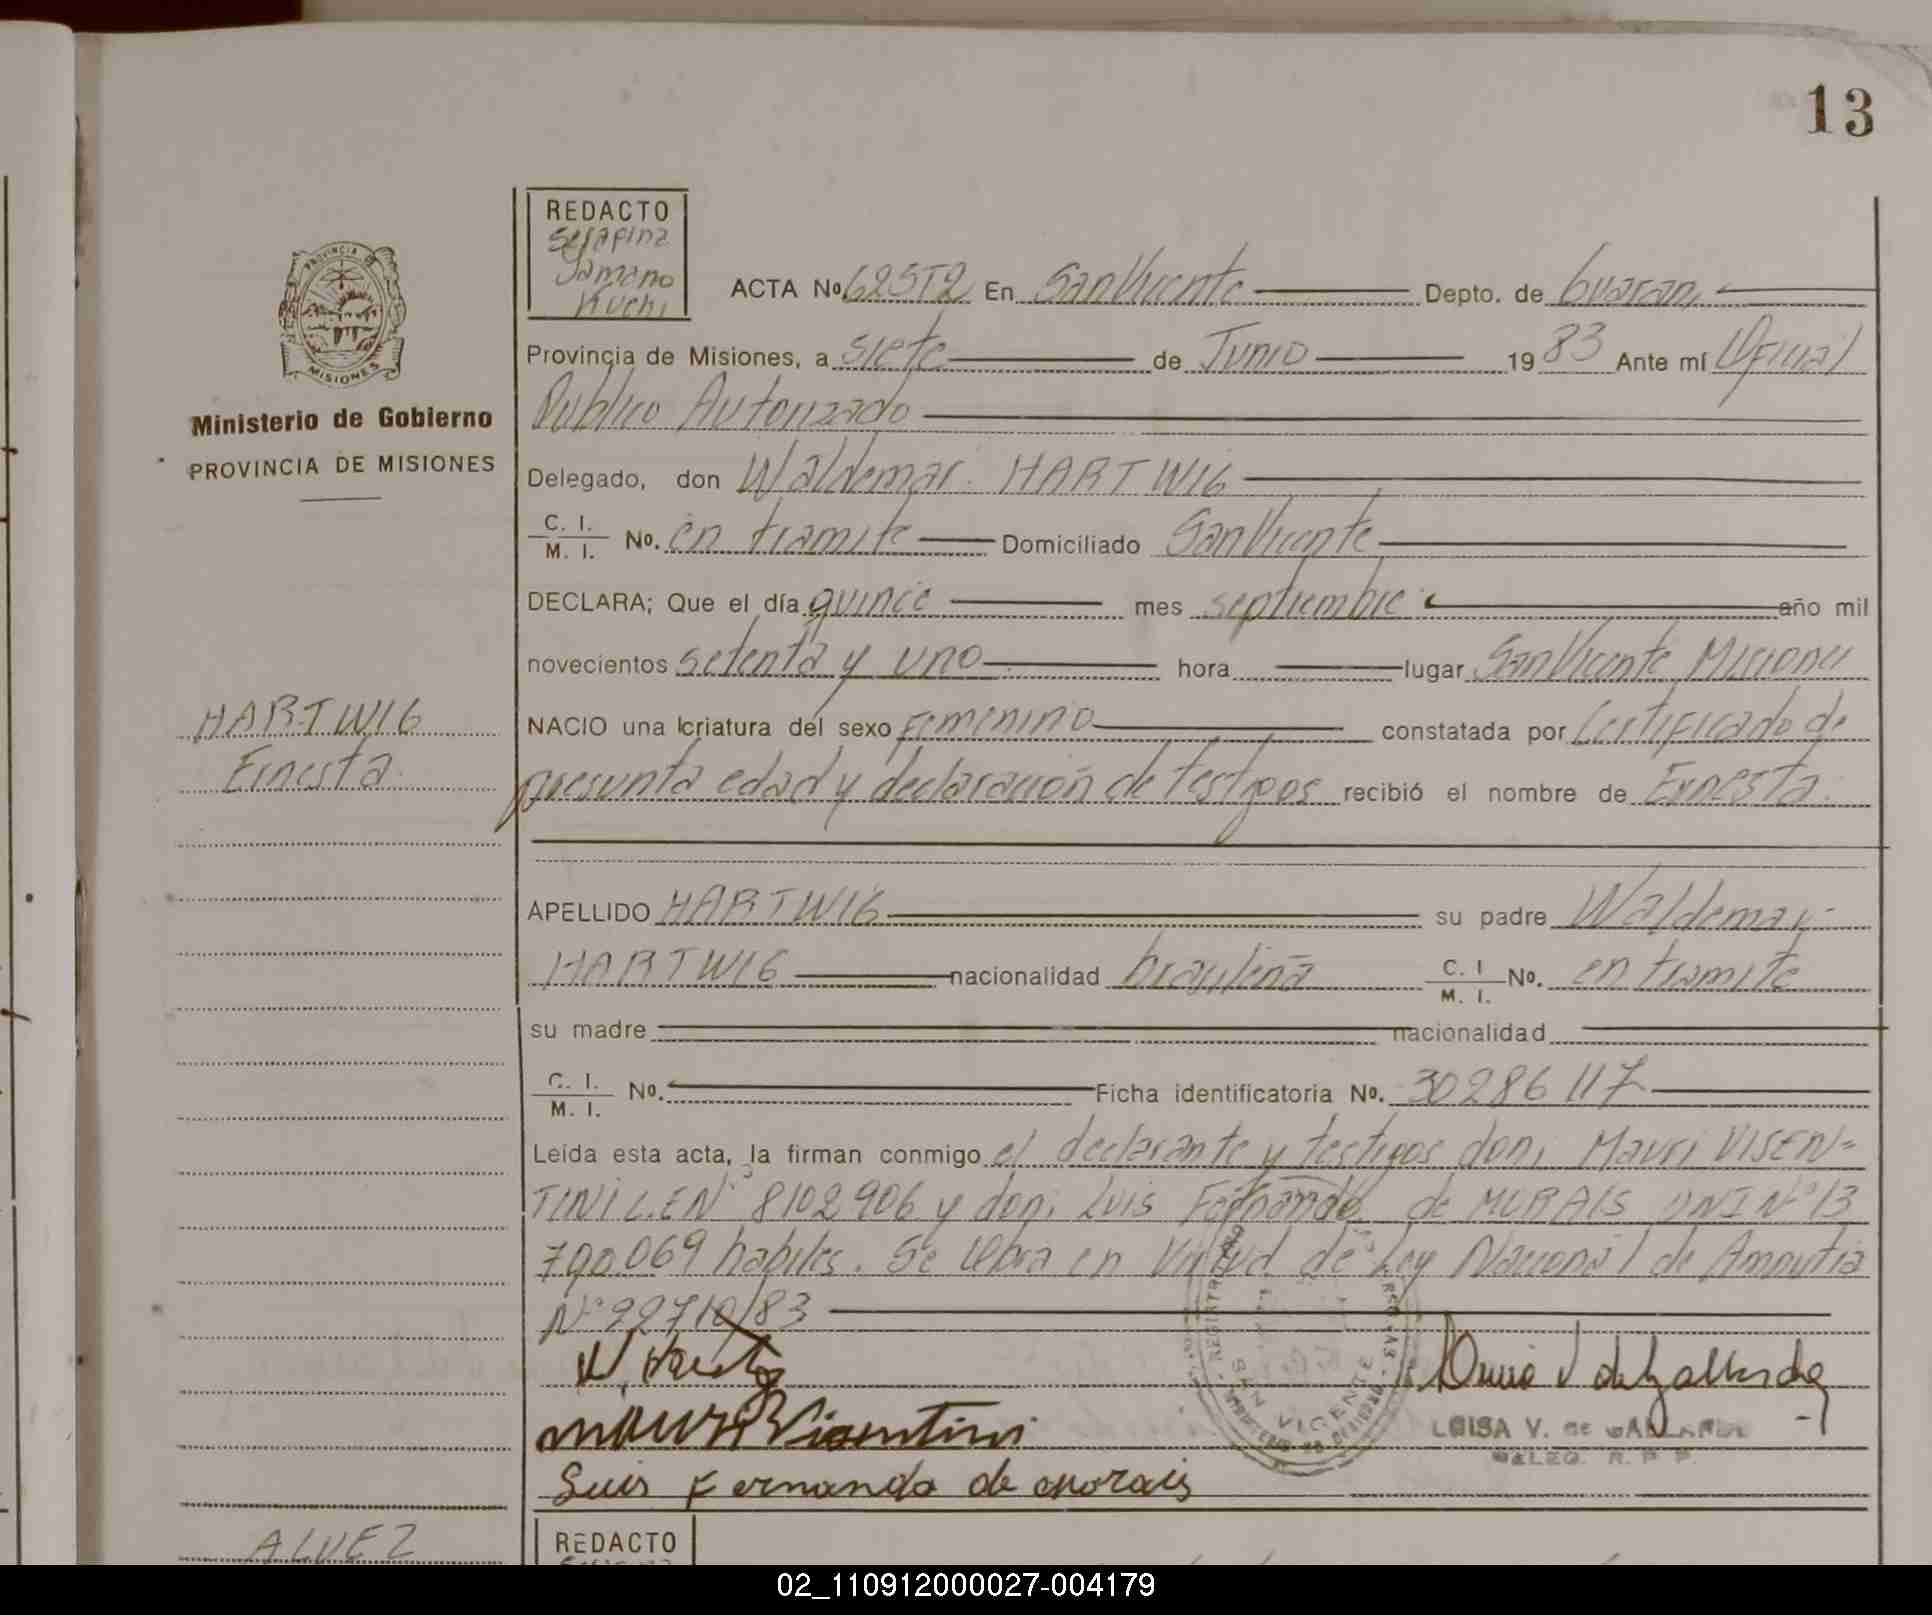 13
REDACTO
Serafina
Kuchi
PROVINCIA DE
MISIONES
Ministerio de Gobierno
PROVINCIA DE MISIONES
ACTA No. En San Vicente Depto. de Guarani
Provincia de Misiones, a siete de Junio 1983 Ante mí Oficial
Publico Autorizado
Delegado, don Waldemar HARTWIG
C. I.
M. I. No. en tramite Domiciliado San Vicente
DECLARA; Que el día quince mes septiembre año mil
novecientos setenta y uno hora lugar San Vicente Misiones
HARTWIG
Ernesta
NACIO una criatura del sexo femenino constatada por Certificado de
presunta edad y declaración de testigos recibió el nombre de Ernesta
APELLIDO HARTWIG su padre Waldemar
HARTWIG nacionalidad brasileña C. I.
M. I. No. en tramite
su madre nacionalidad
C. I.
M. I. No. Ficha identificatoria No. 30286117
Leída esta acta, la firman conmigo el declarante y testigos don; Mauri VISEN-
TINI L.E N° 8102906 y don; Luis Fernando de MORAIS DNI N° 13
790.069 habiles. Se labra en Virtud de Ley Nacional de Amnistia
N° 22710/83
Mauri Visentini
Luis Fernando de Morais
SAN VICENTE
LUISA V. de GALLARDO
DELEG. R. P. P.
ALVEZ
REDACTO
02_110912000027-004179